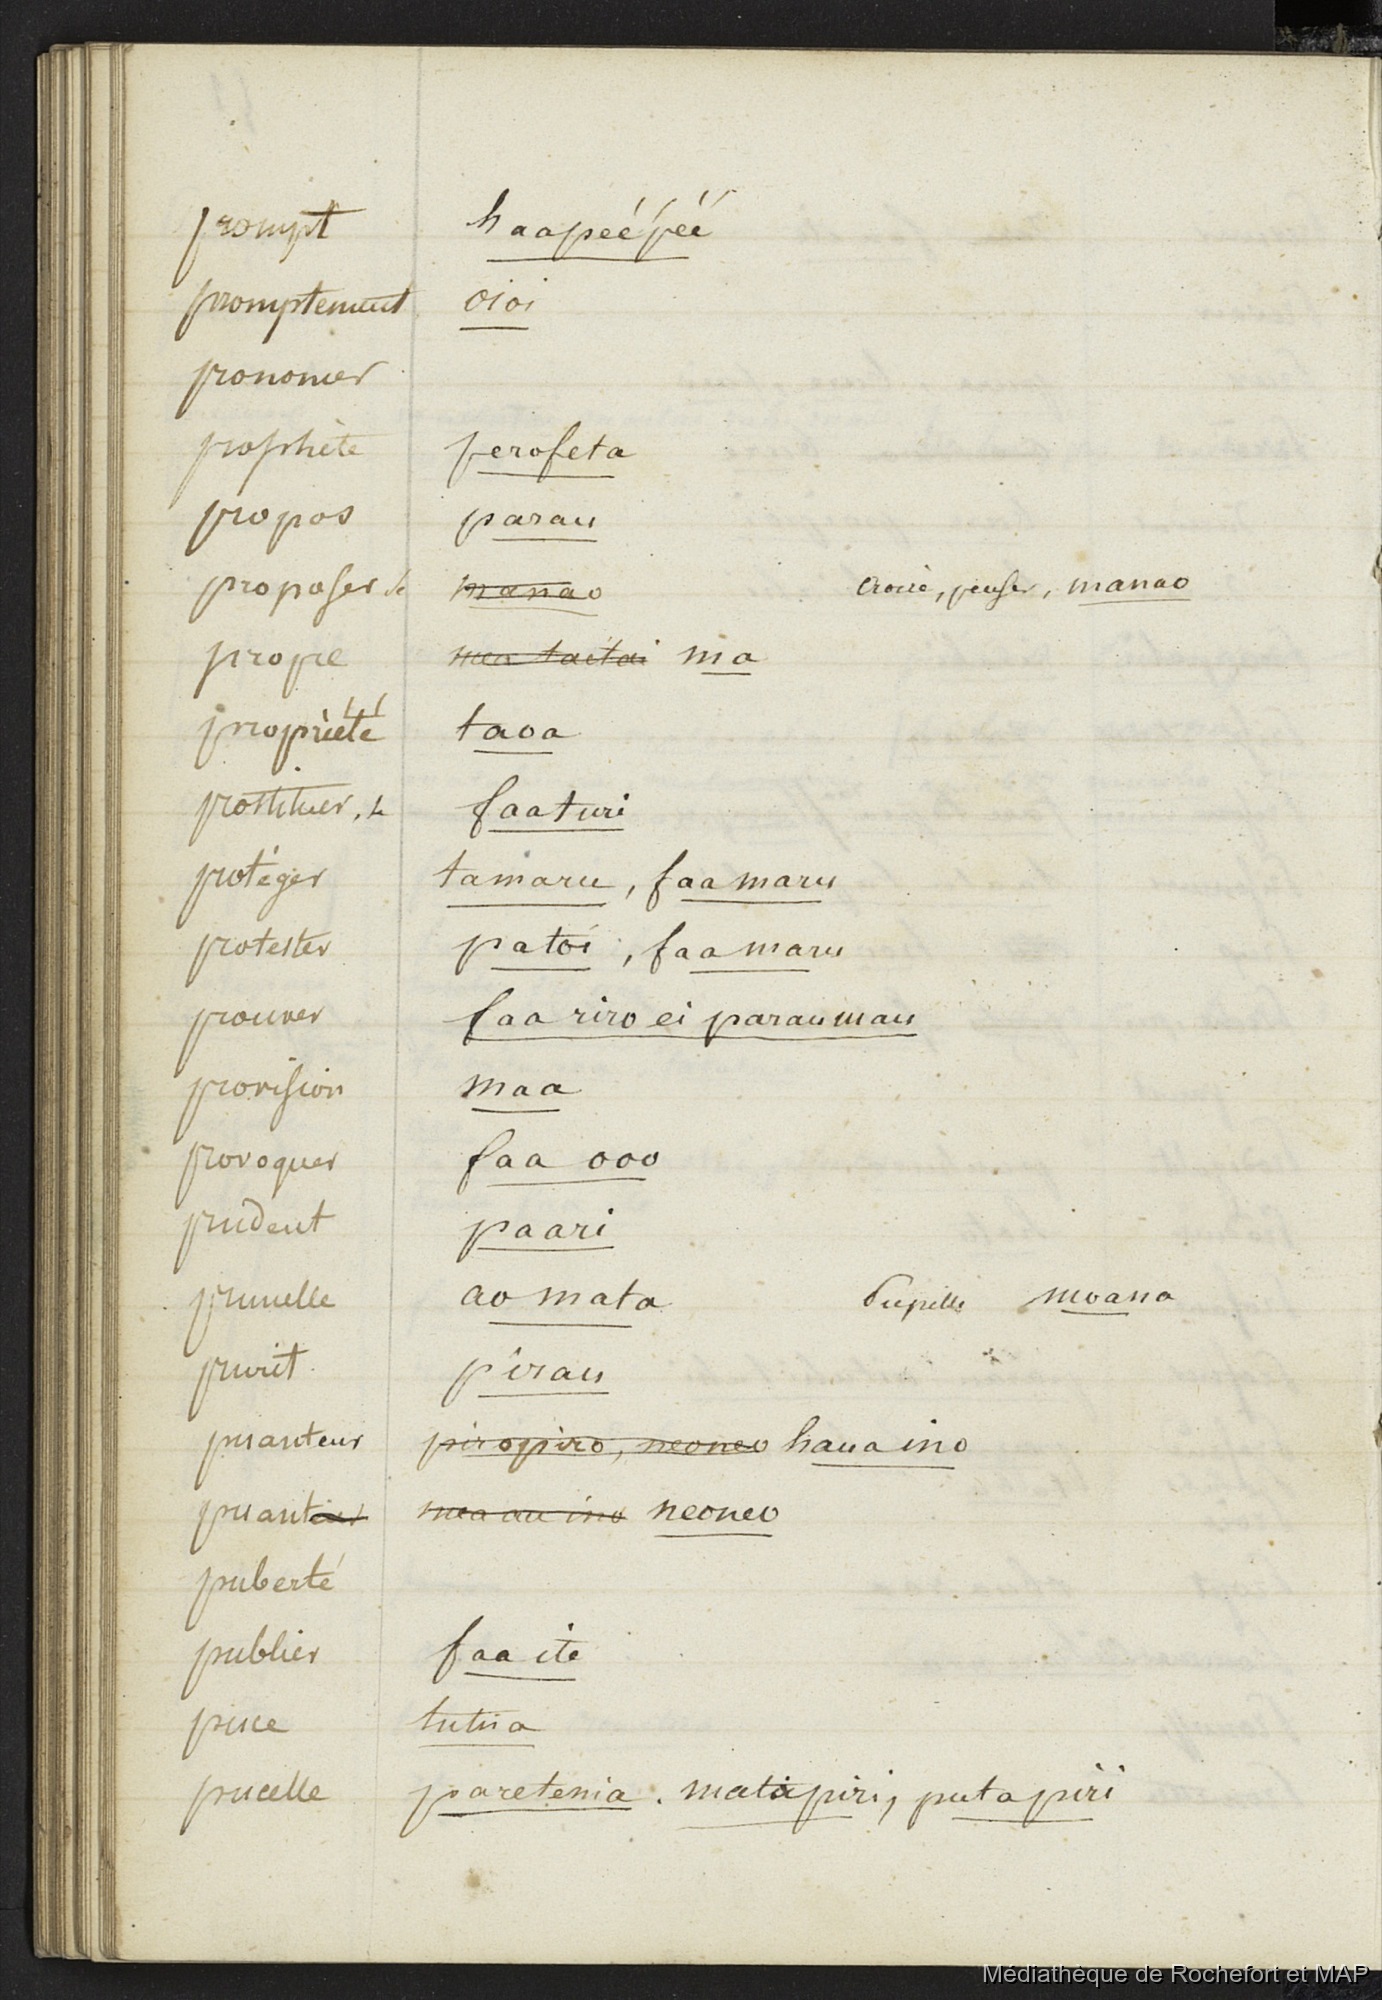 prompt haapéépéé
promptement oioi
prononcer
prophète perofeta
propos parau
proposer, se manao croire, penser, manao
propre mea taetai ma
propriété taoa
prostituer, se faaturi
protéger tamaru, faamaru
protester patoi, faamaru
prouver faa riro ei parau mau
provision maa
provoquer faa ooo
prudent paari
prunelle ao mata Pupille moana
prurit pirau
puanteur piropiro, neoneo haua ino
puanteur mea au ino neoneo
puberté
publier faa ite
puce tutua
pucelle paretenia. matapiri, putapiri
Médiathèque de Rochefort et MAP